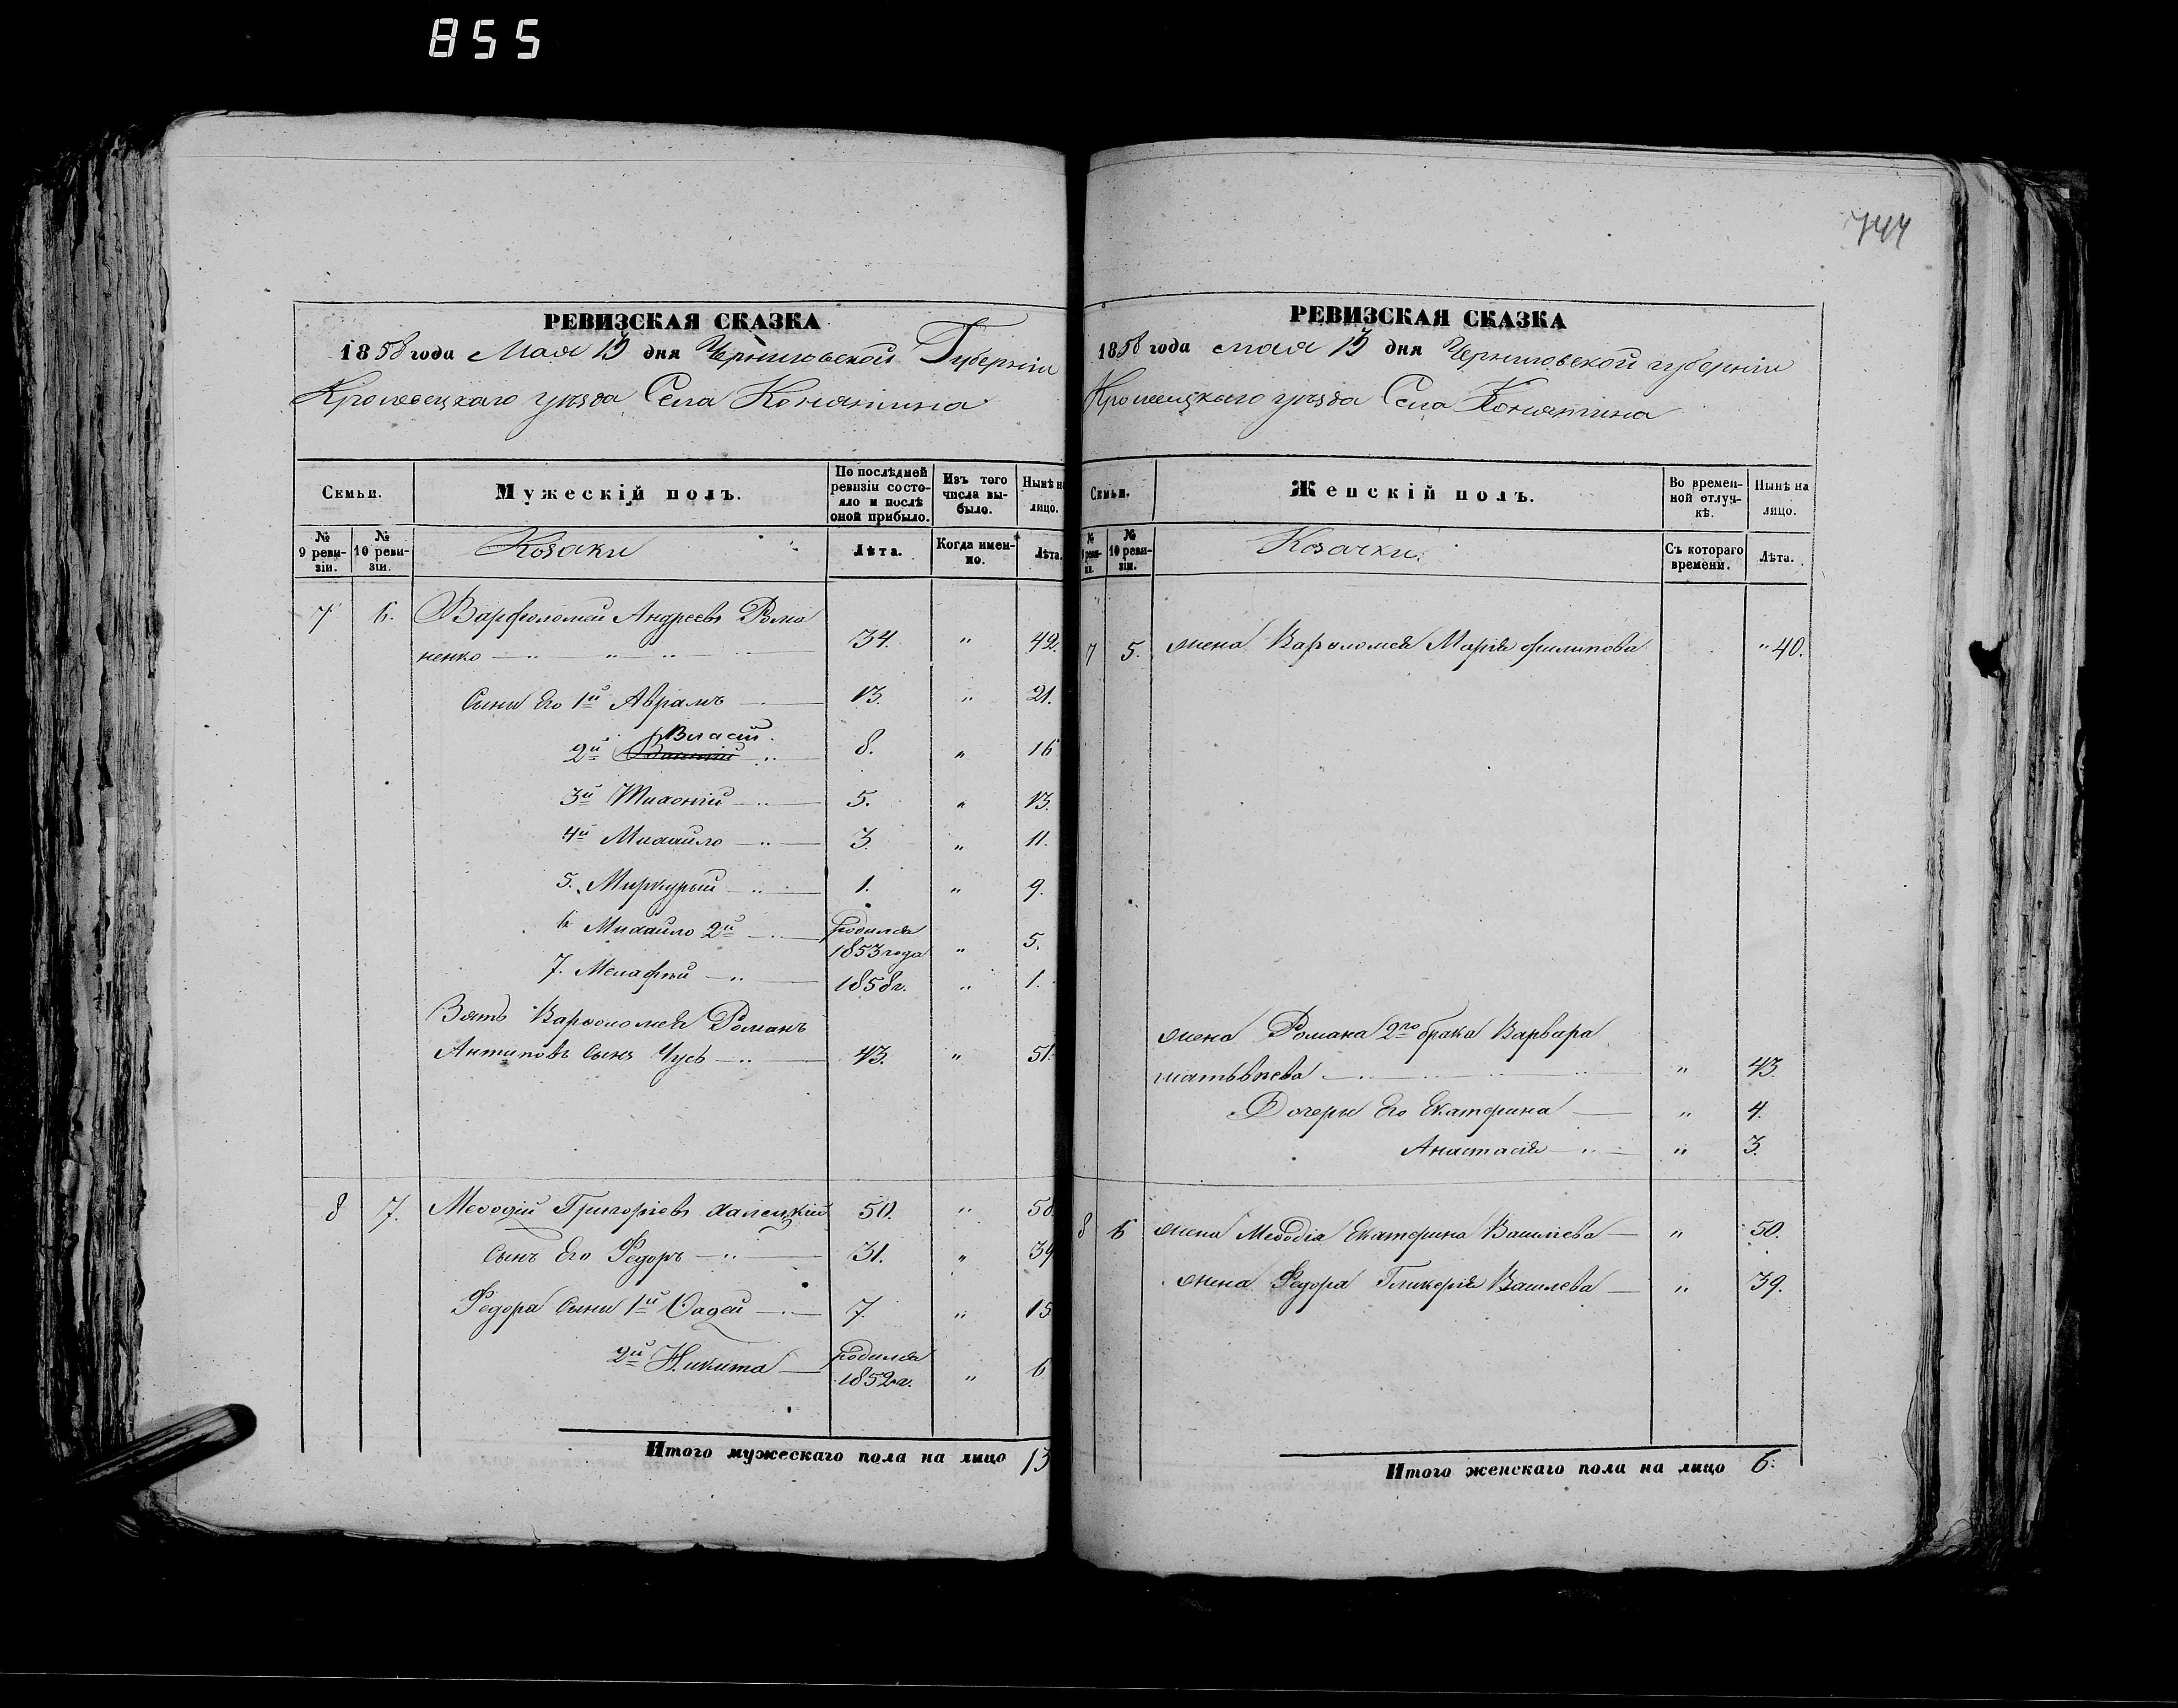 855
744
РЕВИЗСКАЯ СКАЗКА
1858 года Мая 13 дня Черниговской Губерніи
Кролевецкаго уѣзда Села Конятина
Семьи.
Мужескій полъ.
По послѣдней ревизіи состояло и послѣ оной прибыло.
Изъ того числа выбыло.
Нынѣ на лицо.
№ 9 ревизіи.
№ 10 ревизіи.
Козаки
Лѣта.
Когда именно.
Лѣта.
7 6. Варфоломей Андреевъ Рома
ненко 34. " 42.
Сыны Его 1й Аврамъ 13. " 21.
Власій
2й 8. " 16
3й Тихоній 5. " 13.
4й Михайло 3. " 11.
5. Миркурый 1. " 9.
6 Михайло 2й родился 1853 года " 5.
7. 1858г. " 1.
Зять Варѳоломея Романъ
Антиповъ Сынъ Чусь 43. " 51.
8 7. Меѳодій Григоріевъ Халецкій 50. " 58.
Сынъ Его Федоръ 31. " 39
Федора Сыны 1й Ѳадей 7. " 15
2й Никита родился 1852 г. " 6
Итого мужескаго пола на лицо 13
РЕВИЗСКАЯ СКАЗКА
1858 года мая 13 дня Черниговской губерніи
Кролевецкаго уѣзда Села Конятина
Семьи.
Женскій полъ.
Во временной отлучкѣ.
Нынѣ на лицо.
№ 9 ревизіи.
№ 10 ревизіи.
Козачки.
Съ котораго времени.
Лѣта.
7 5. жена Варѳоломея Марія филипова " 40.
жена Романа 2го брака Варвара
матьвѣева " 43.
Дочери Его Екатерина " 4.
Анастасія " 3.
8 6 жена Меѳодія Екатерина Василіева " 50.
жена Федора Гликерія Василева " 39.
Итого женскаго пола на лицо 6.